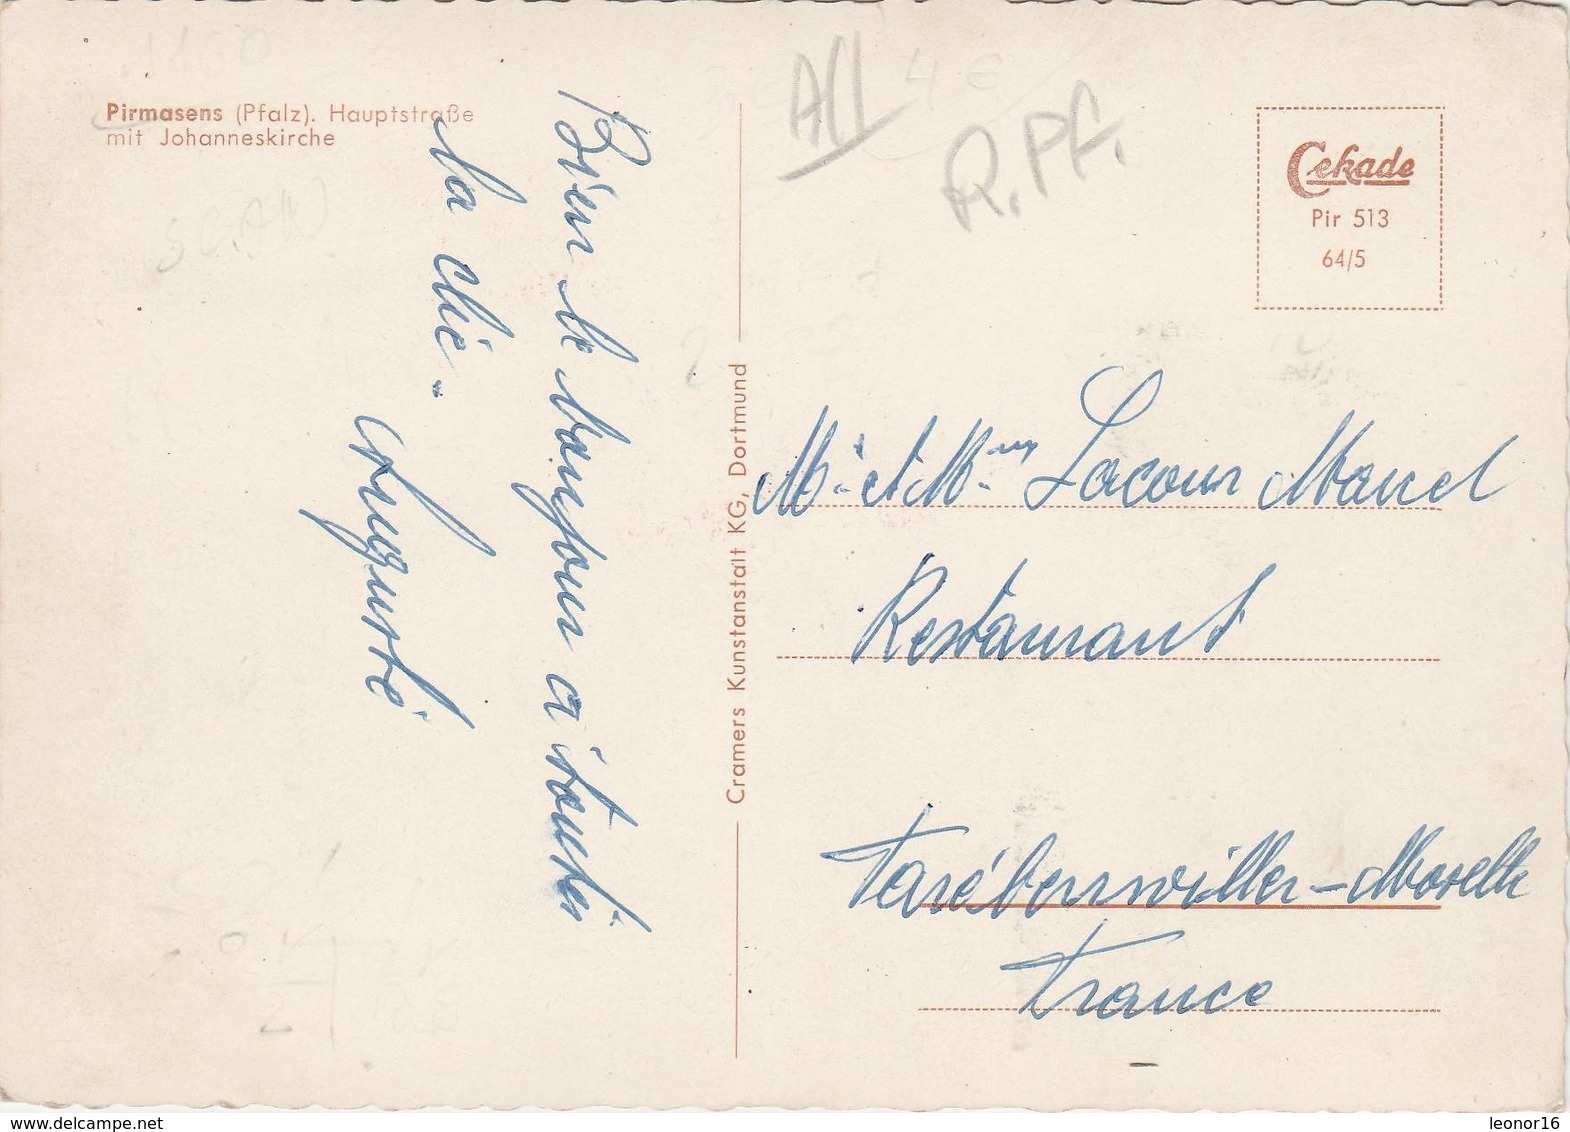 Pirmasens (Pfalz). Hauptstraße
mit Johanneskirche
Bien le bonjour a toute
la clié.
Auguste
Cramers Kunstanstalt KG, Dortmund
All 4 €
R.Pf.
Cekade
Pir 513
64/5
Mr. et Mme Lacour Marcel
Restaurant
Farébersviller - Moselle
France
delcampe.net
leonor16